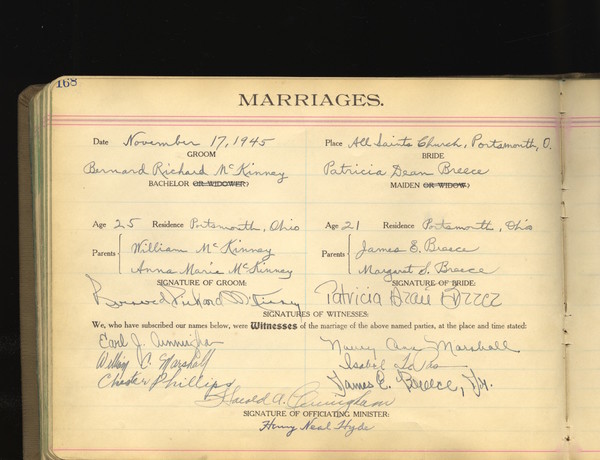 168
MARRIAGES.
Date November 17, 1945 Place All Saints Church, Portsmouth, O.
GROOM BRIDE
Bernard Richard McKinney Patricia Dean Breece
BACHELOR OR WIDOWER) MAIDEN OR WIDOW)
Age 25 Residence Portsmouth, Ohio Age 21 Residence Portsmouth, Ohio
Parents { William McKinney Parents { James E. Breece
Anna Marie McKinney Margaret S. Breece
SIGNATURE OF GROOM: SIGNATURE OF BRIDE:
Bernard Richard McKinney Patricia Dean Breece
SIGNATURES OF WITNESSES:
We, who have subscribed our names below, were Witnesses of the marriage of the above named parties, at the place and time stated:
Earl J. Nancy Ann Marshall
William C. Marshall Isabel
Chester Phillips James E. Breece, Jr.
Harold A. Cunningham
SIGNATURE OF OFFICIATING MINISTER:
Henry Neal Hyde